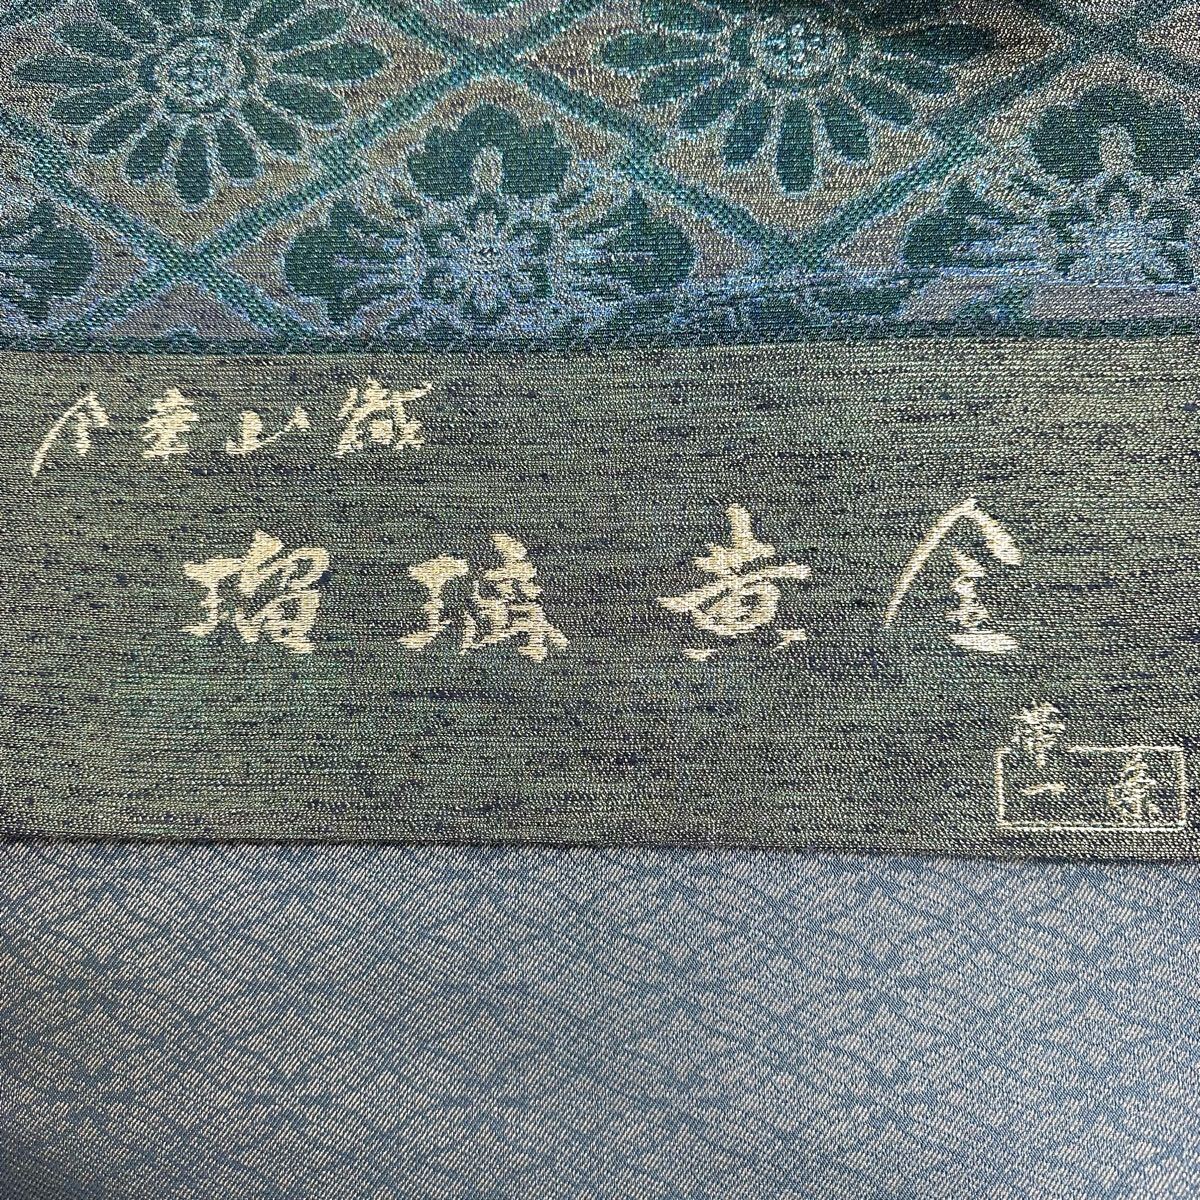 山織
瑠璃黄金
帯一条